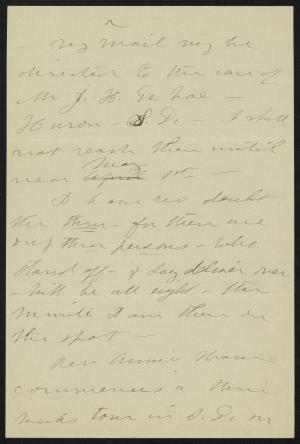 - my mail may be
directed to the care of
Mr J. H. De Voe -
Huron - S. D. - I shall
not reach there until
May
near April 1st -
I have no doubt
the three - for there are
only three persons - who
stand off - & say deliver over
- will be all right - the
minute I am there on
the spot -
Rev. Annie Shaw
commences a three
weeks tour in S. D. on